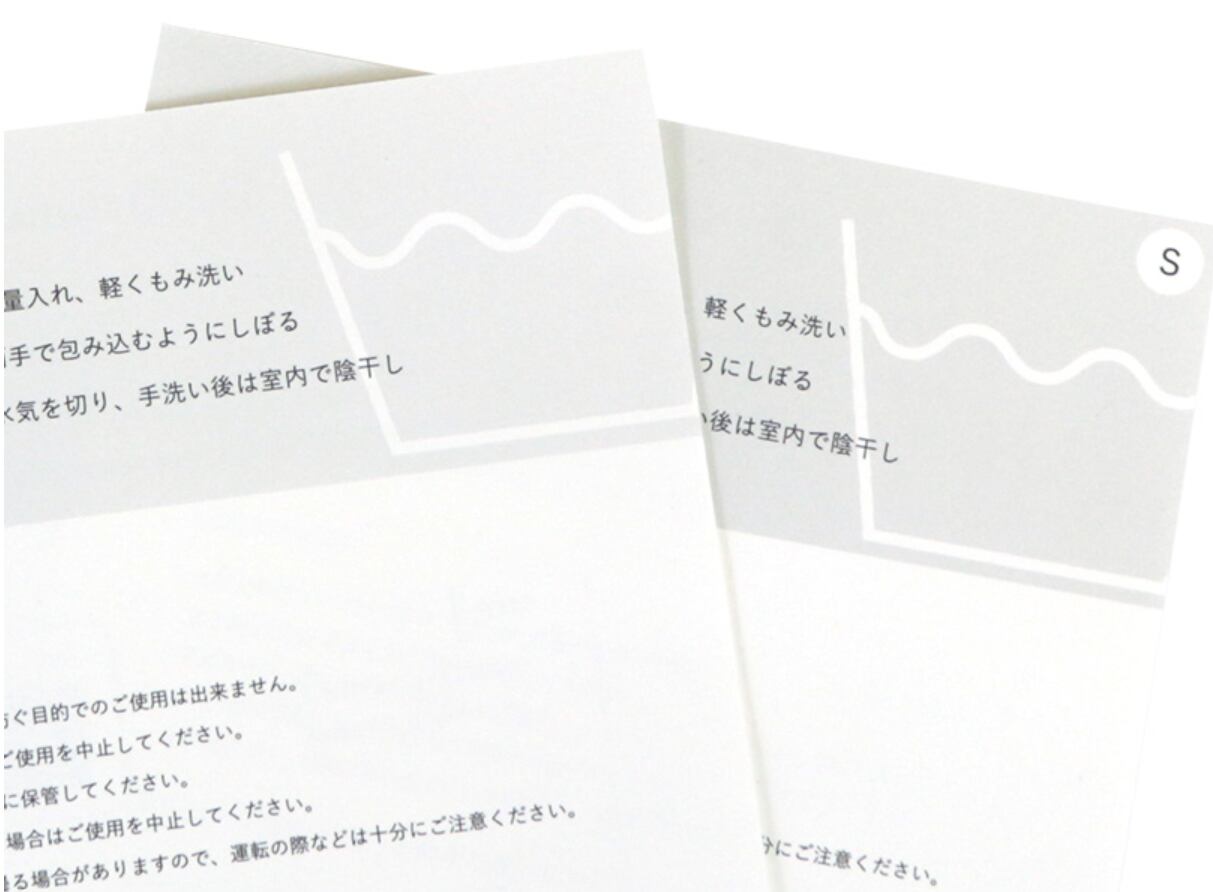 量入れ、軽くもみ洗い
手で包み込むようにしぼる
水気を切り、手洗い後は室内で陰干し
ぐ目的でのご使用は出来ません。
ご使用を中止してください。
に保管してください。
場合はご使用を中止してください。
る場合がありますので、運転の際などは十分にご注意ください。
S
軽くもみ洗い
うにしぼる
後は室内で陰干し
分にご注意ください。